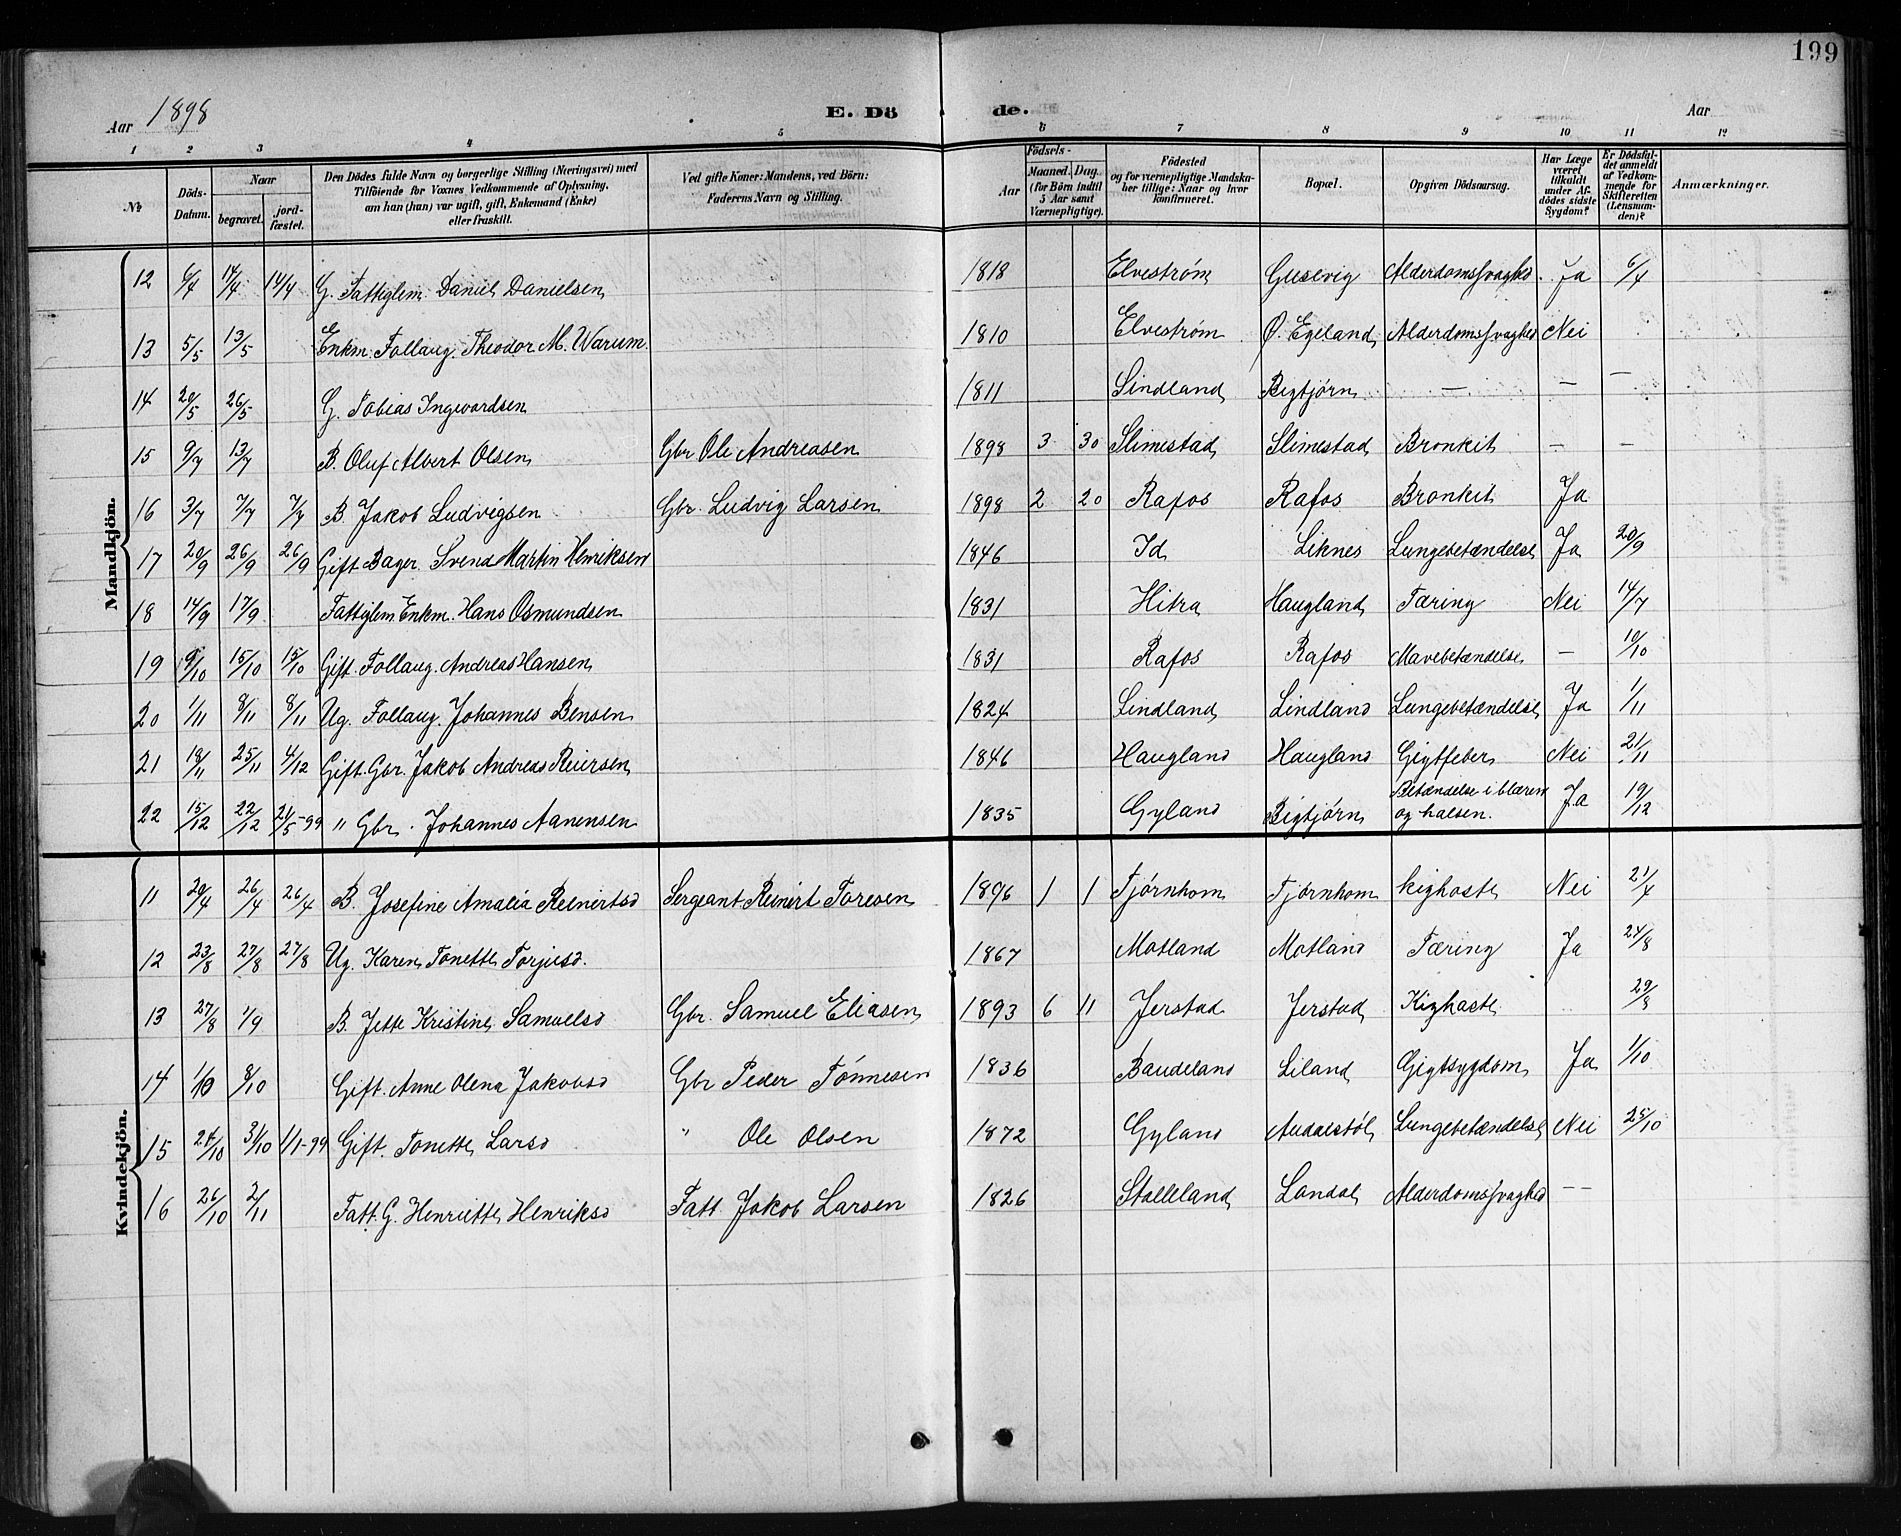 199
Aar 1898 E. Dö de. Aar
1 2 3 4 5 6 7 8 9 10 11 12
№ Döds-Datum. Naar begravet. jordfæstet. Den Dödes fulde Navn og borgerlige Stilling (Næringsvei) med Tilföiende for Voxnes Vedkommende af Oplysning, om han (hun) var ugift, gift, Enkemand (Enke) eller fraskilt. Ved gifte Koner: Mandens, ved Börn: Faderens Navn og Stilling. Aar Födsels- Maaned. Dag. (for Börn indtil 5 Aar samt Værnepligtige). Födested og for værnepligtige Mandskaber tillige: Naar og hvor konfirmeret. Bopæl. Opgiven Dödsaarsag. Har Læge været tilkaldt under Afdödes sidste Sygdom? Er Dödsfaldet anmeldt af Vedkommende for Skifteretten (Lensmanden)? Anmærkninger.
Mandkjön.
12 6/4 14/4 14/4 G. Fattiglem. Daniel Danielsen 1818 Elveström Gusevig Alderdomssvaghed Ja 6/4
13 5/5 13/5 Enkm. Follaug. Theodor M. Warum 1810 Elveström Ø. Egeland Alderdomssvaghed Nei
14 20/5 26/5 G. Tobias Ingwardsen 1811 Lindland Bigtjørn — — —
15 9/7 13/7 B. Oluf Albert Olsen Gbr Ole Andreasen 1898 3 30 Slimestad Slimestad Bronkit — —
16 3/7 7/7 7/7 B. Jakob Ludvigsen Gbr. Ludvig Larsen 1898 2 20 Rafos Rafos Bronkit Ja
17 20/9 26/9 26/9 Gift Bager. Svend Martin Henriksen 1846 Id Liknes Lungebetændelse Ja 20/9
18 14/9 17/9 Fattiglem Enkm. Hans Osmundsen 1831 Hitra Haugland Tæring Nei 14/7
19 9/10 15/10 15/10 Gift. Follaug. Andreas Hansen 1831 Rafos Rafos Mavebetændelse — 10/10
20 1/11 8/11 8/11 Ug. Follaug. Johannes Bensen 1824 Lindland Lindland Lungebetændelse Ja 1/11
21 18/11 25/11 4/12 Gift. Gbr. Jakob Andreas Reiersen 1846 Haugland Haugland Gigtfeber Nei 21/11
22 15/12 22/12 21/5-99 " Gbr. Johannes Aanensen 1835 Gyland Bigtjørn Betændelse i blæren og halsen. Ja 19/12
Kvindekjön.
11 20/4 26/4 26/4 B. Josefine Amalia Reinertsd Sergeant Reinert Toresen 1896 1 1 Tjørnhom Tjørnhom kighoste Nei 21/4
12 23/8 27/8 27/8 Ug. Karen Tonette Torjusd. 1867 Motland Motland Tæring Ja 24/8
13 27/8 1/9 B. Jette Kristine Samuelsd Gbr. Samuel Eliasen 1893 6 11 Jerstad Jerstad Kighoste 29/8
14 1/10 8/10 Gift. Anne Olena Jakobsd Gbr Peder Tønnesen 1836 Baudeland Liland Gigtsygdom Ja 1/10
15 24/10 31/10 1/1-99 Gift. Tonette Larsd " Ole Olsen 1872 Gyland Lungebetændelse Nei 25/10
16 26/10 2/11 Fatt. G. Henriette Henriksd Fatt. Jakob Larsen 1826 Stalleland Londal Alderdomssvaghed — —